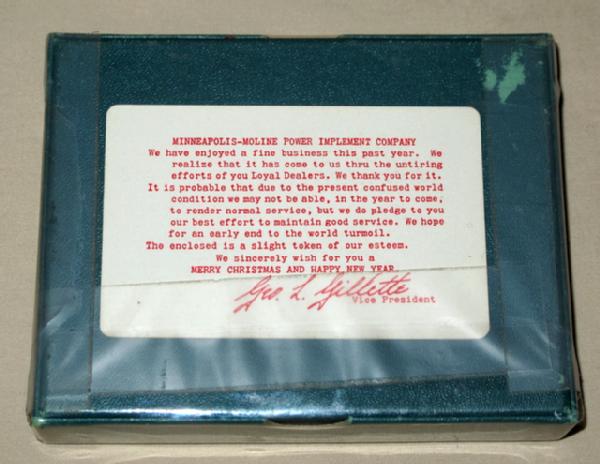 MINNEAPOLIS-MOLINE POWER IMPLEMENT COMPANY
We have enjoyed a fine business this past year. We
realize that it has come to us thru the untiring
efforts of you Loyal Dealers. We thank you for it.
It is probable that due to the present confused world
condition we may not be able, in the year to come,
to render normal service, but we do pledge to you
our best effort to maintain good service. We hope
for an early end to the world turmoil.
The enclosed is a slight token of our esteem.
We sincerely wish for you a
MERRY CHRISTMAS AND HAPPY NEW YEAR
Geo. L. Gillette
Vice President